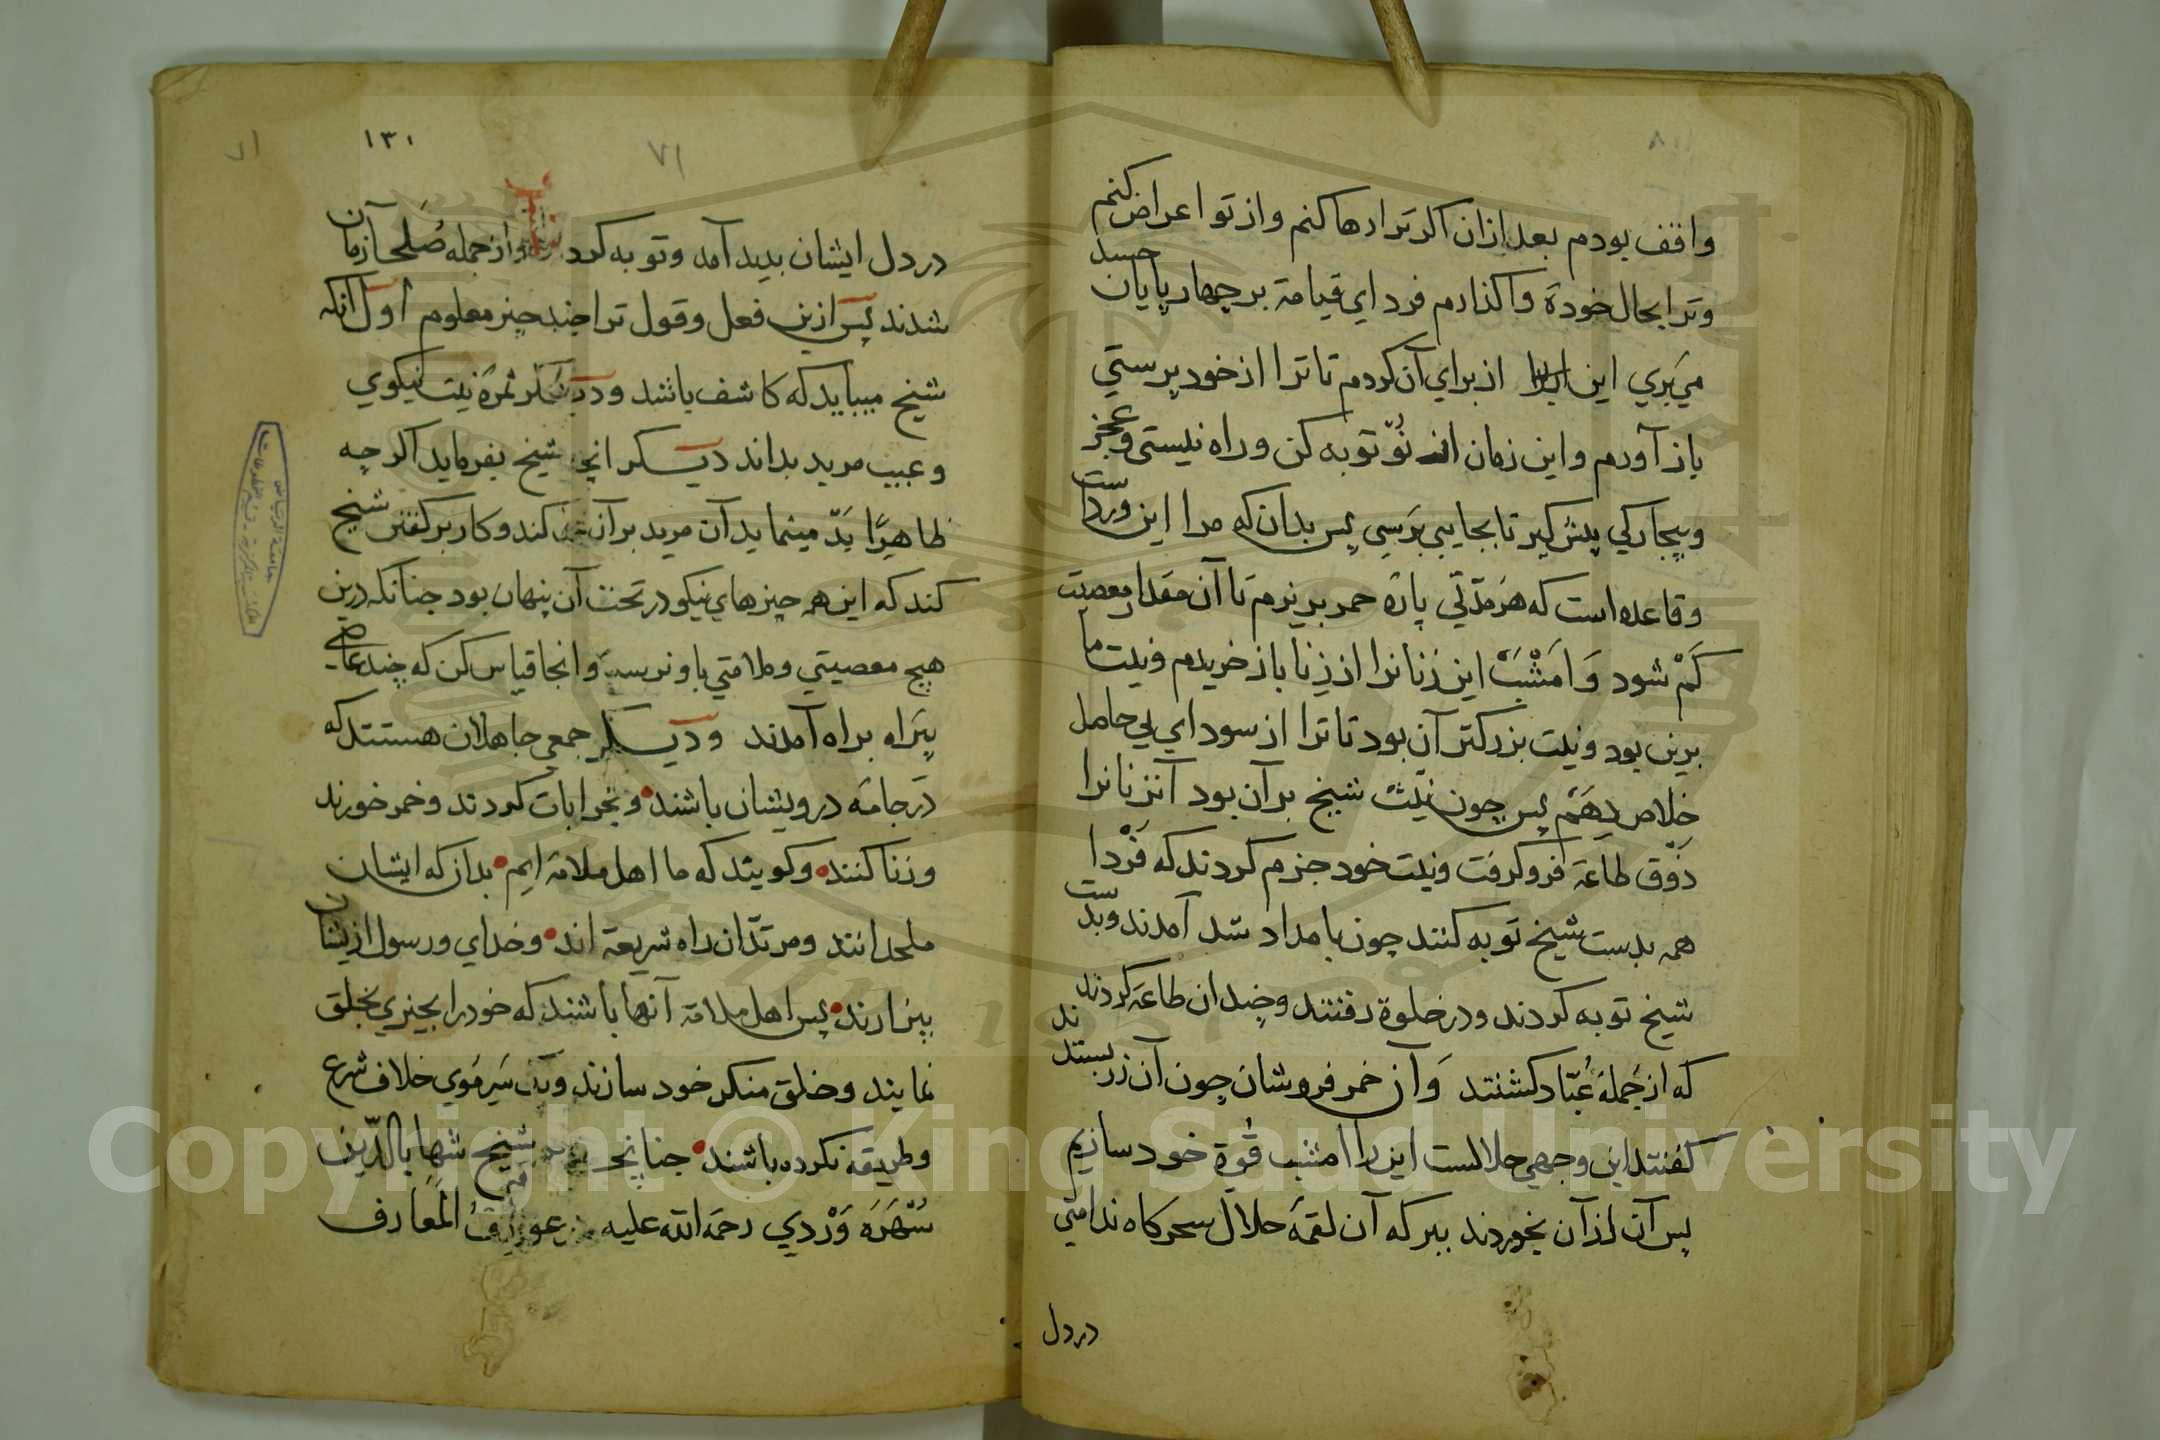 واقف بودم بعد ازان اکر ترا رها کنم واز تو اعراض کنم
وترا بحال خودۀ واکذارم فردای قیامة بر چهار پایان حسد
می بری این از برای آن کردم تا ترا از خود پرستی
باز آوردم واین زمان تو توبه کن وراه نیستی وعجز
وبیچارکی پیش کیر تا بجایی برسی پس بدان که مرا این وردست
وقاعده است که هر مدتی پارۀ خمر بریزم تا آن مقدار معصیت
کم شود وامشب این زنانرا از زنا باز خریدم ونیت ما
برین بود ونیت بزرکتر آن بود تا ترا از سودای بی حاصل
خلاص دهم پس چون نیت شیخ بر آن بود آنزنانرا
ذوق طاعة فرو کرفت ونیت خود جزم کردند که فردا
همه بدست شیخ توبه کنند چون بامداد شد آمدند وبدست
شیخ توبه کردند ودر خلوة رفتند وچندان طاعة کردند
که از جملۀ عباد کشتند وآن خمر فروشان چون آن زر بستدند
کفتند این وجهی حلالست این را امشب قوة خود سازیم
پس آن از آن بخوردند ببرکه آن لقمۀ حلال سحرکاه ندامتی
در دل
١٣٠
٧١
در دل ایشان بدید آمد وتوبه کردند واز جمله صلحا آن زمان
شدند پس ازین فعل وقول ترا چند چیز معلوم اول انکه
شیخ میباید که کاشف باشد ودیکر ثمرۀ نیت نیکوی
وعیب مرید بداند دیکر انچه شیخ بفرماید اکر چه
ظاهرا بد مینماید آن مرید بر آن کند وکار بر کفتن شیخ
کند که این همه چیزهای نیکو در تحت آن پنهان بود چنانکه درین
هیچ معصیتی وملامتی باو نرسد وانجا قیاس کن که چند عاصی
بیراه براه آمدند ودیکر جمعی جاهلان هستند که
در جامۀ درویشان باشند وبخرابات کردند وخمر خورند
وزنا کنند وکویند که ما اهل ملامة ایم بدان که ایشان
ملحدانند ومرتدان راه شریعة اند وخدای ورسول ازیشان
بیزارند پس اهل ملامة آنها باشند که خودرا بچیزی بخلق
نمایند وخلق منکر خود سازند ویک سر موی خلاف شرع
وطریقه نکرده باشند چنانچه شیخ شهاب الدین
سهروردی رحمة الله علیه در عوارف المعارف
جامعة الرياض
Copyright © King Saud University